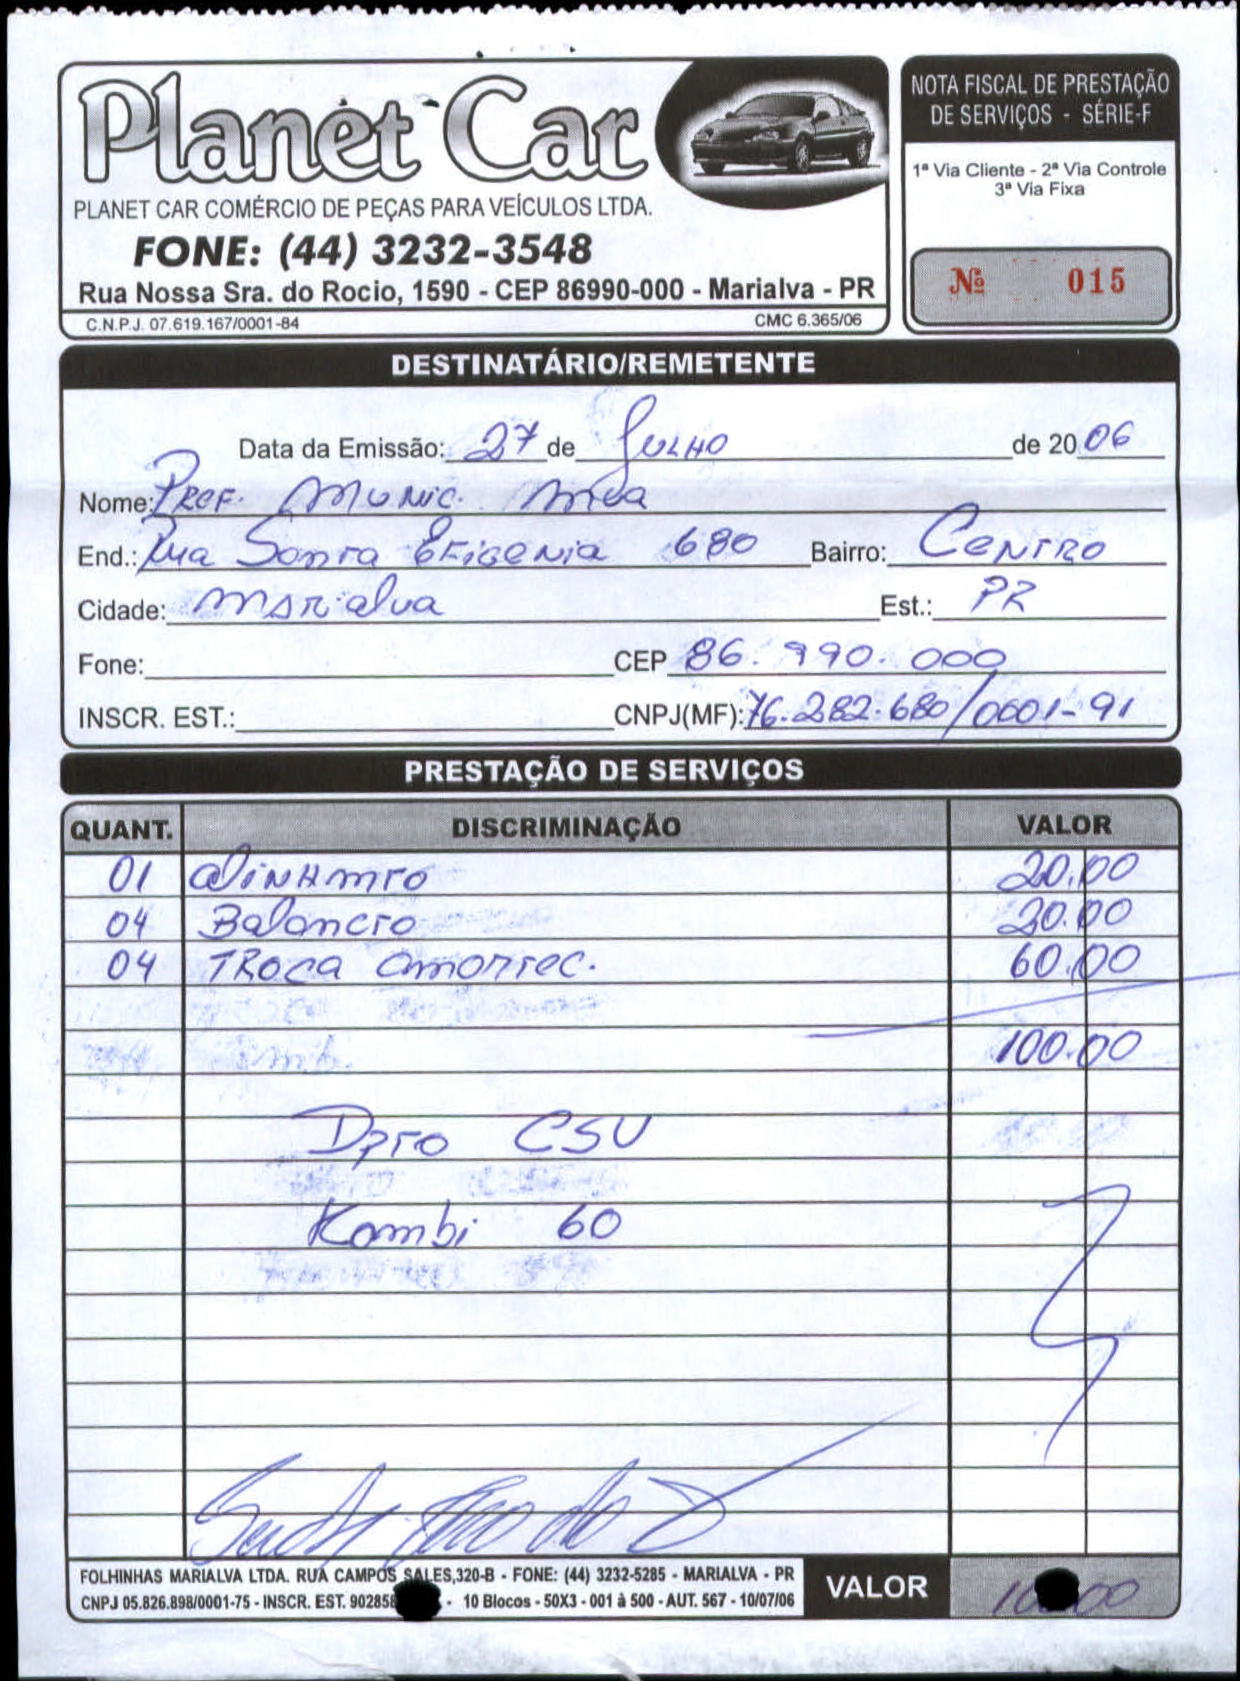 Planet Car
PLANET CAR COMÉRCIO DE PEÇAS PARA VEÍCULOS LTDA.
FONE: (44) 3232-3548
Rua Nossa Sra. do Rocio, 1590 - CEP 86990-000 - Marialva - PR
C.N.P.J. 07.619.167/0001-84 CMC 6.365/06
NOTA FISCAL DE PRESTAÇÃO
DE SERVIÇOS - SÉRIE-F
1ª Via Cliente - 2ª Via Controle
3ª Via Fixa
Nº 015
DESTINATÁRIO/REMETENTE
Data da Emissão: 27 de Julho de 20 06
Nome: Pref. Munic. Mva
End.: Rua Santa Efigenia 680 Bairro: Centro
Cidade: Marialva Est.: PR
Fone: CEP 86.990.000
INSCR. EST.: CNPJ(MF): 76.282.680/0001-91
PRESTAÇÃO DE SERVIÇOS
QUANT. DISCRIMINAÇÃO VALOR
01 Alinhamto 20.00
04 Balancto 20.00
04 Troca amortec. 60.00
100.00
Dpto CSU
Kombi 60
FOLHINHAS MARIALVA LTDA. RUA CAMPOS SALES,320-B - FONE: (44) 3232-5285 - MARIALVA - PR
CNPJ 05.826.898/0001-75 - INSCR. EST. 90285 - 10 Blocos - 50X3 - 001 à 500 - AUT. 567 - 10/07/06
VALOR